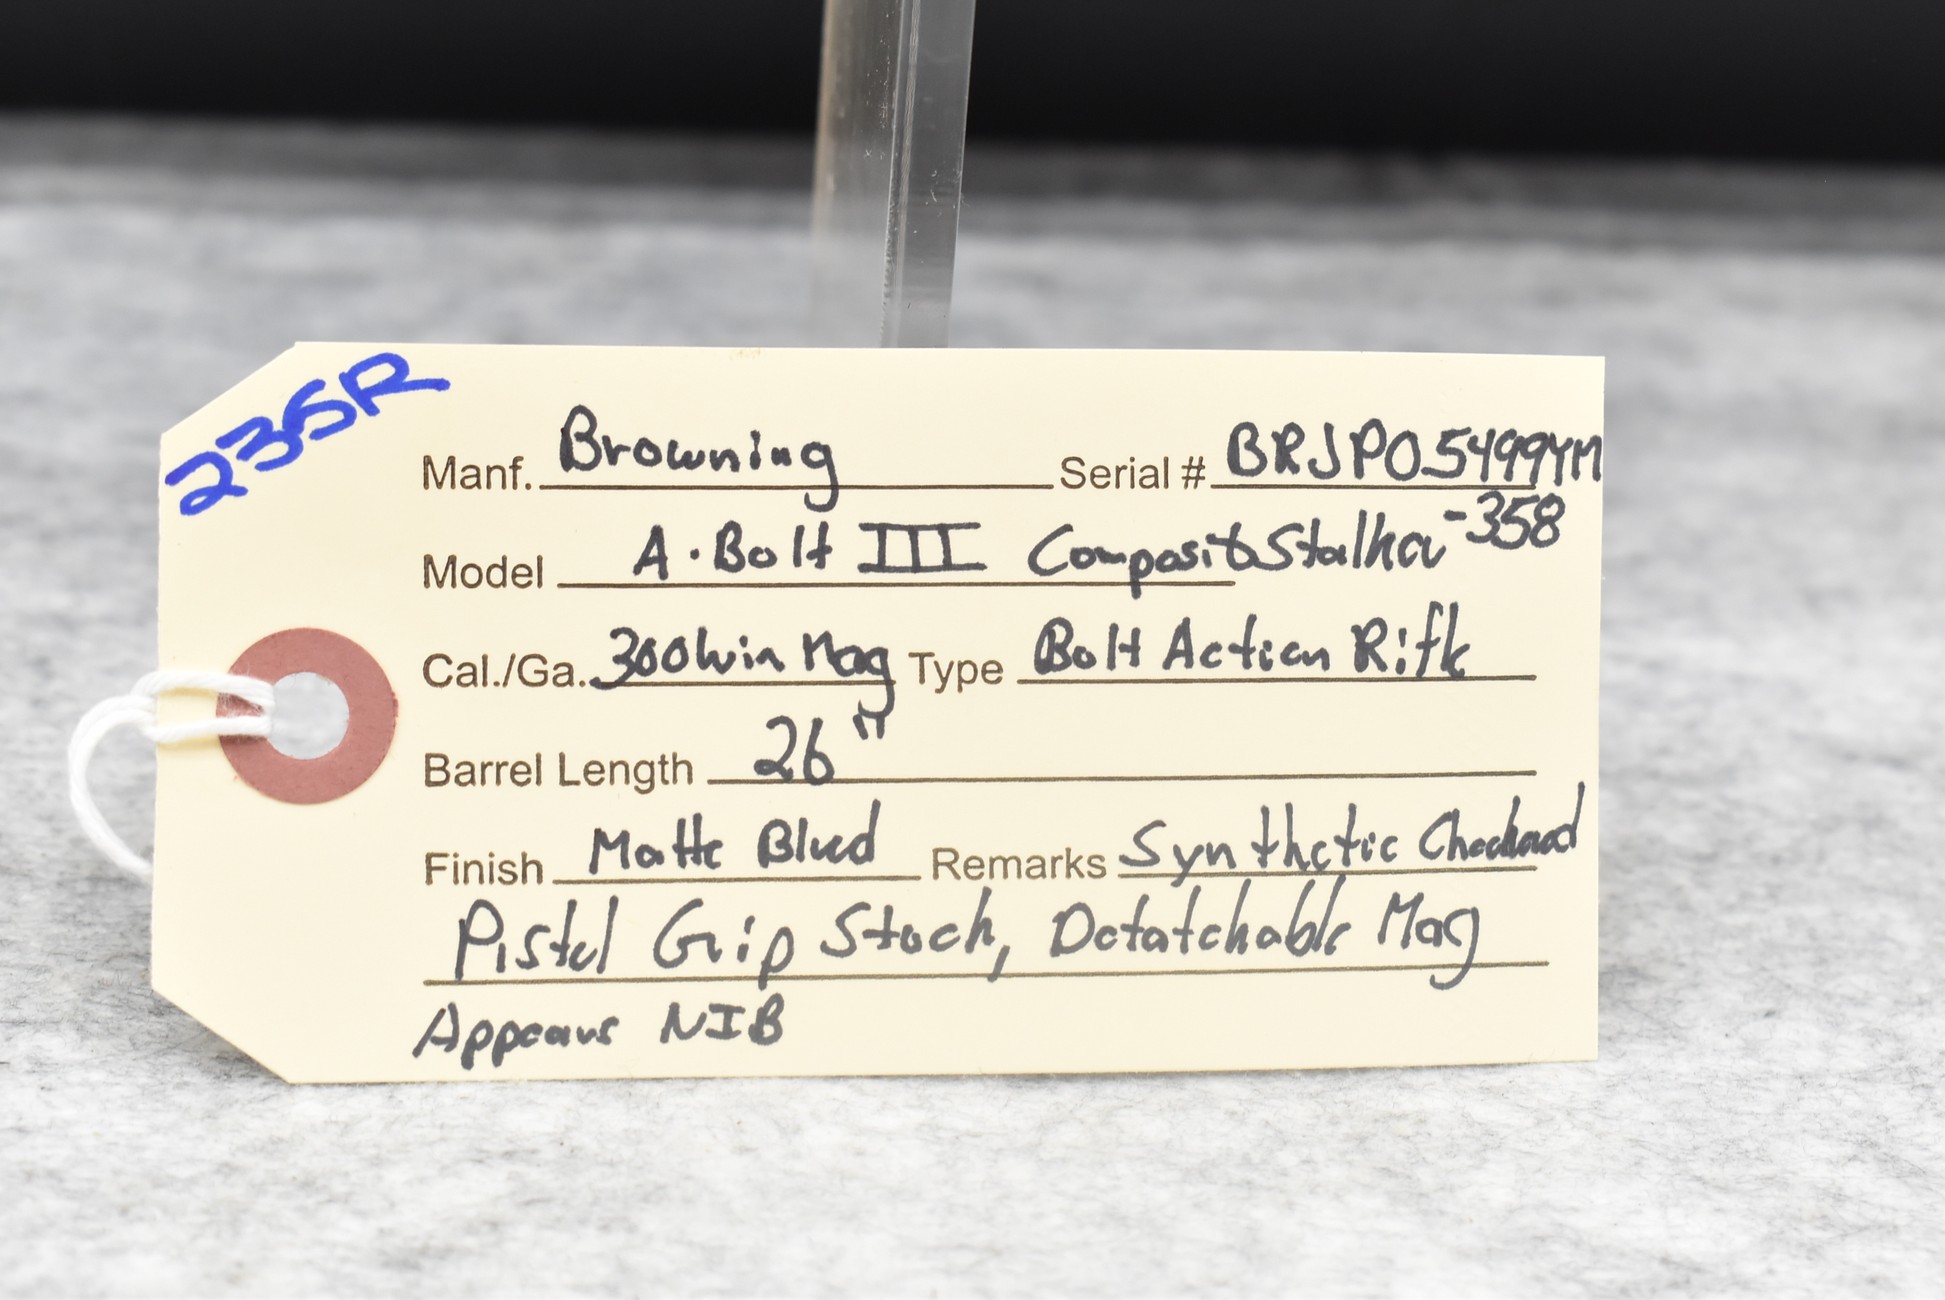 235R
Manf. Browning Serial # BRJP05499YM
-358
Model A·Bolt III Composite Stalker
Cal./Ga. 300 Win Mag Type Bolt Action Rifle
Barrel Length 26"
Finish Matte Blued Remarks Synthetic Checkered
Pistol Grip Stock, Detatchable Mag
Appears NIB